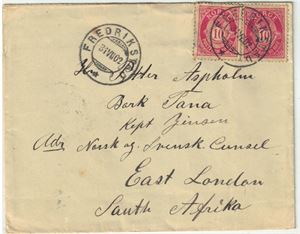 FREDRIKS
31 VII 02
10 10
Herr Otter Aspholm
Bark Tana
Kept Jensen
Adr Norsk og Svensk Consel
East London
South Afrika